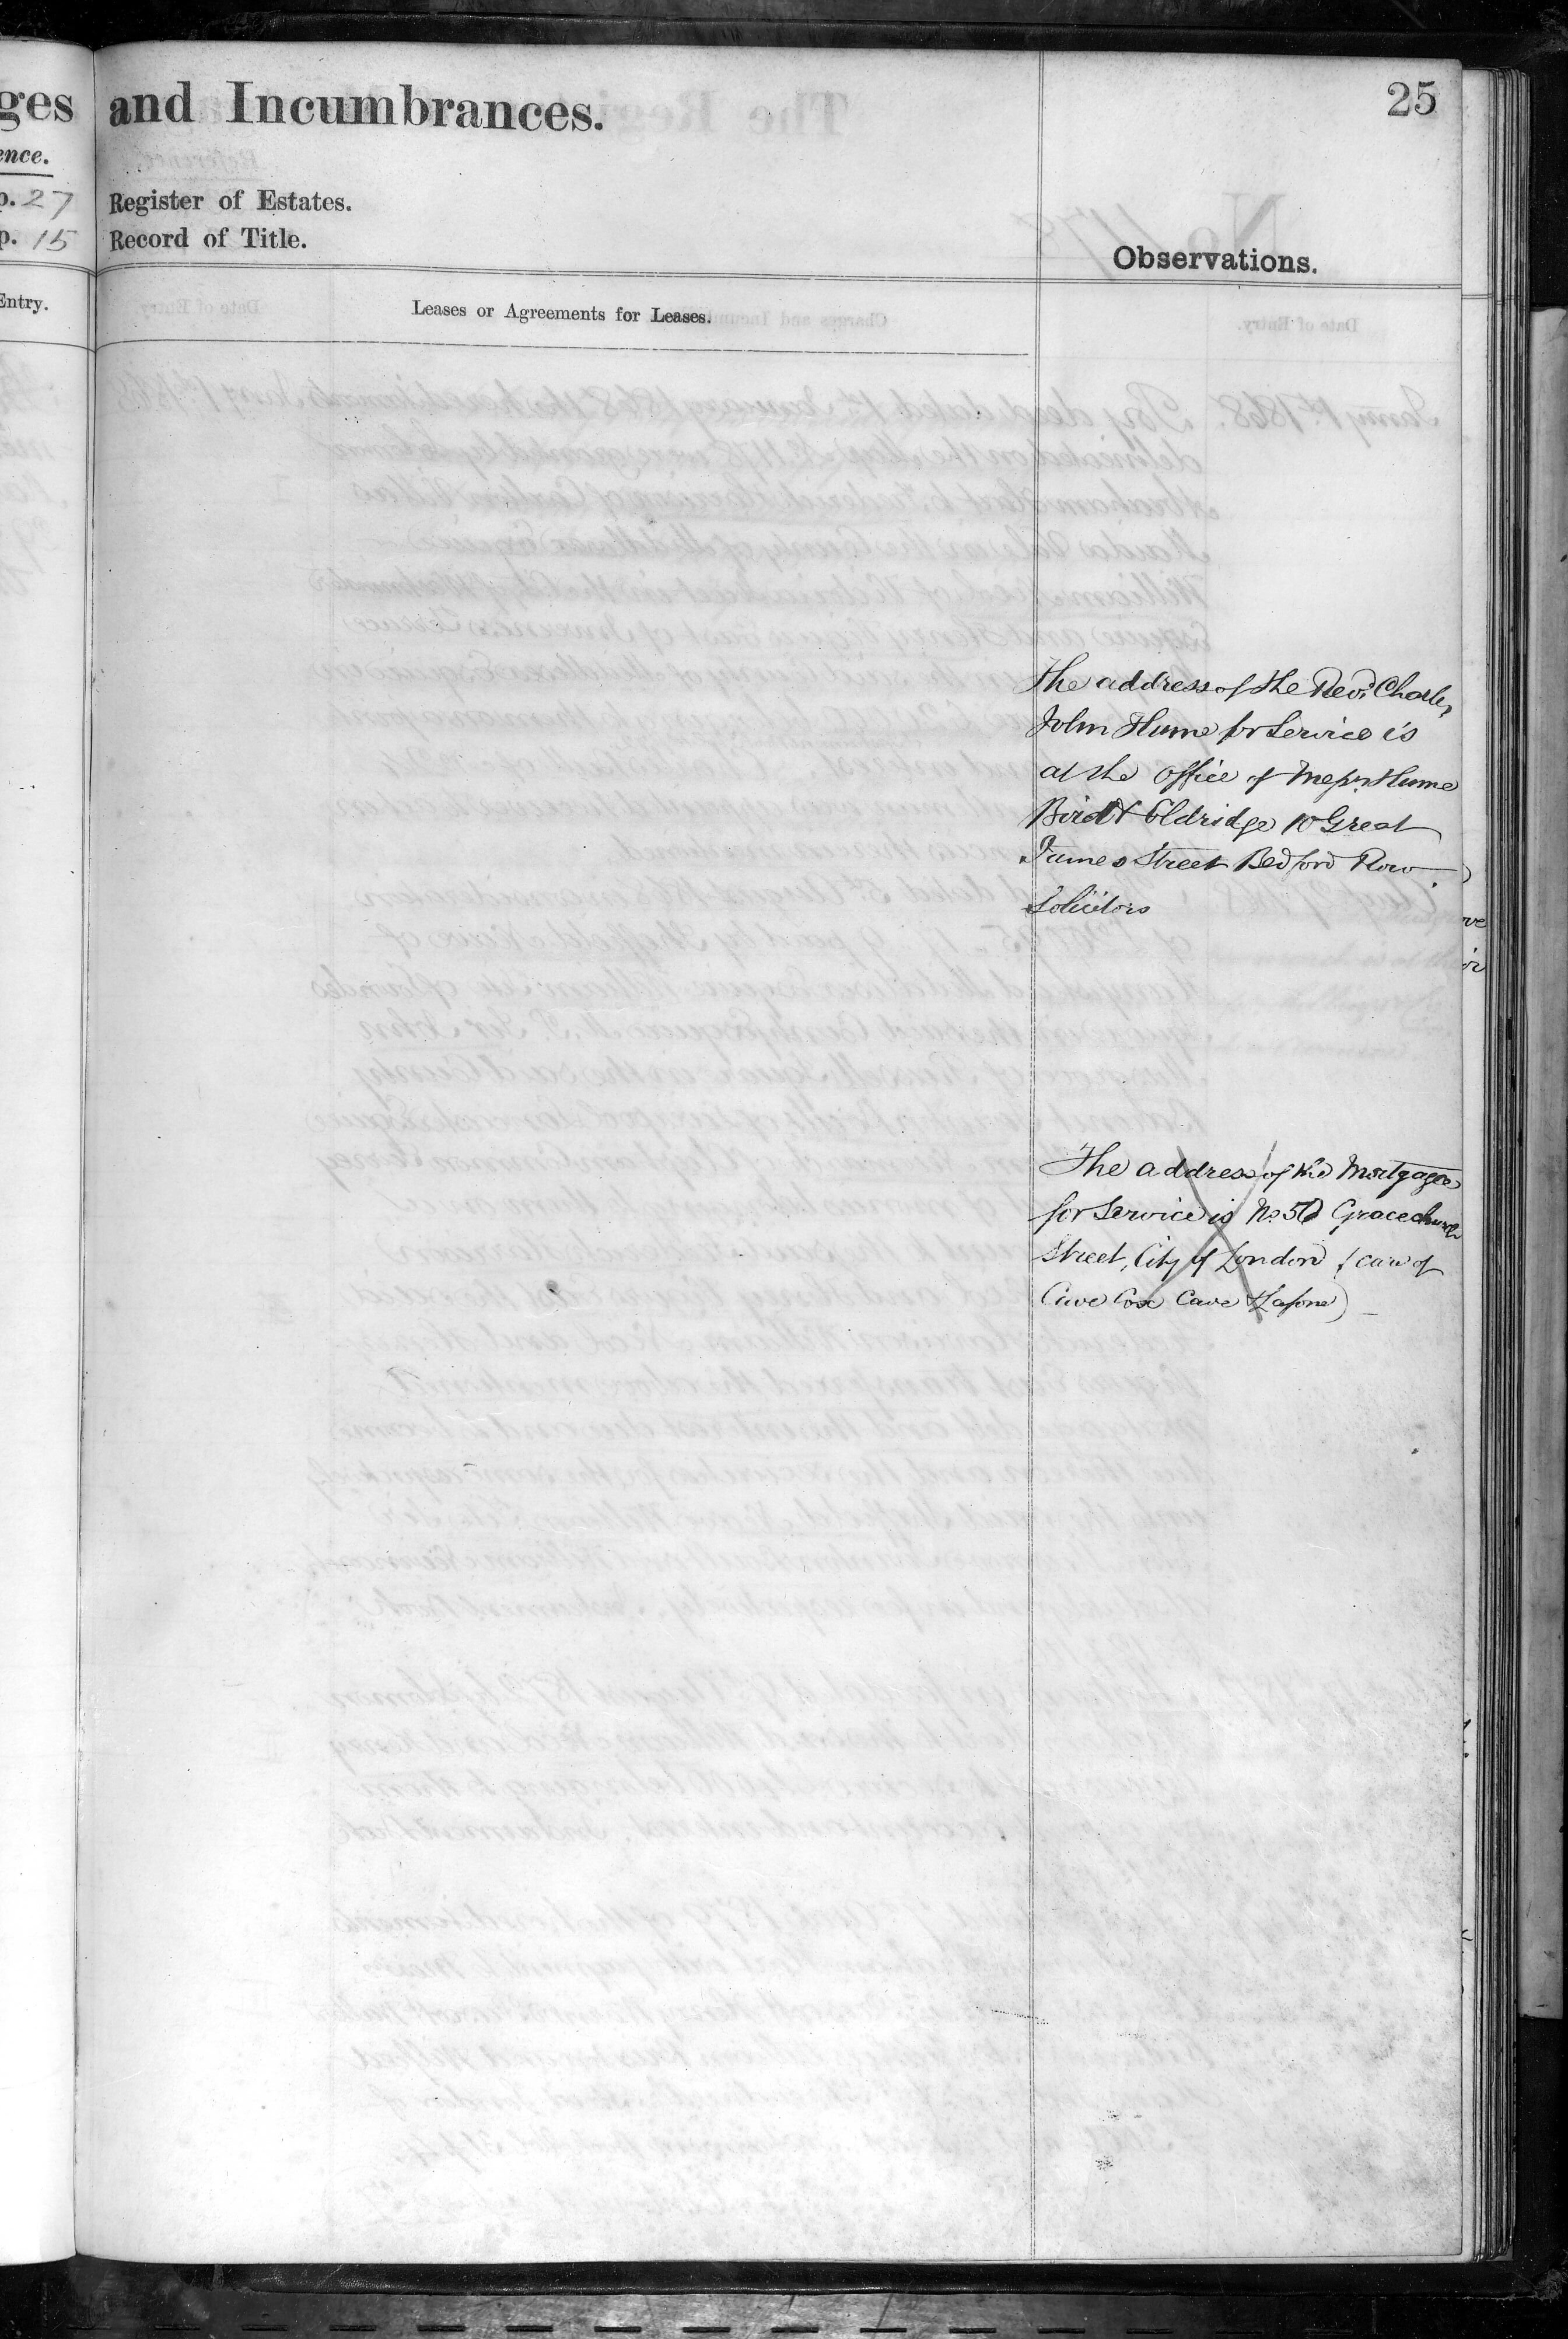 ges and Incumbrances.
25
ence.
p. 27 Register of Estates.
p. 15 Record of Title.
Observations.
Entry.
Leases or Agreements for Leases.
The address of the Revd. Charles
John Hume for Service is
at the office of Messrs Hume
Bird & Eldridge 10 Great
James Street Bedford Row
Solicitors
The address of the Mortgagee
for Service is No. 50 Gracechurch
Street, City of London (care of
Cave Cave